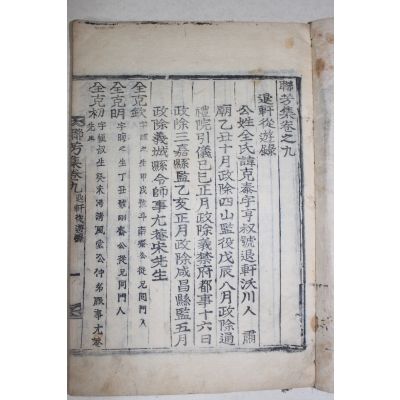 聯芳集卷之九
退軒從遊錄
公姓全氏諱克泰字亨叔號退軒沃川人 肅
廟乙丑十月政除四山監役戊辰八月政除通
禮院引儀己巳正月政除義禁府都事十六日
政除三嘉縣監乙亥正月政除咸昌縣監五月
政除義城縣令師事尤菴宋先生
全克欽 字 生甲戌號 齋公從兄同門人
全克明 字 之生丁丑號 齋公從兄同門人
全克初 字 叔生癸未 清風堂公仲弟服事尤菴
先生
聯芳集卷九 退軒從遊錄 一